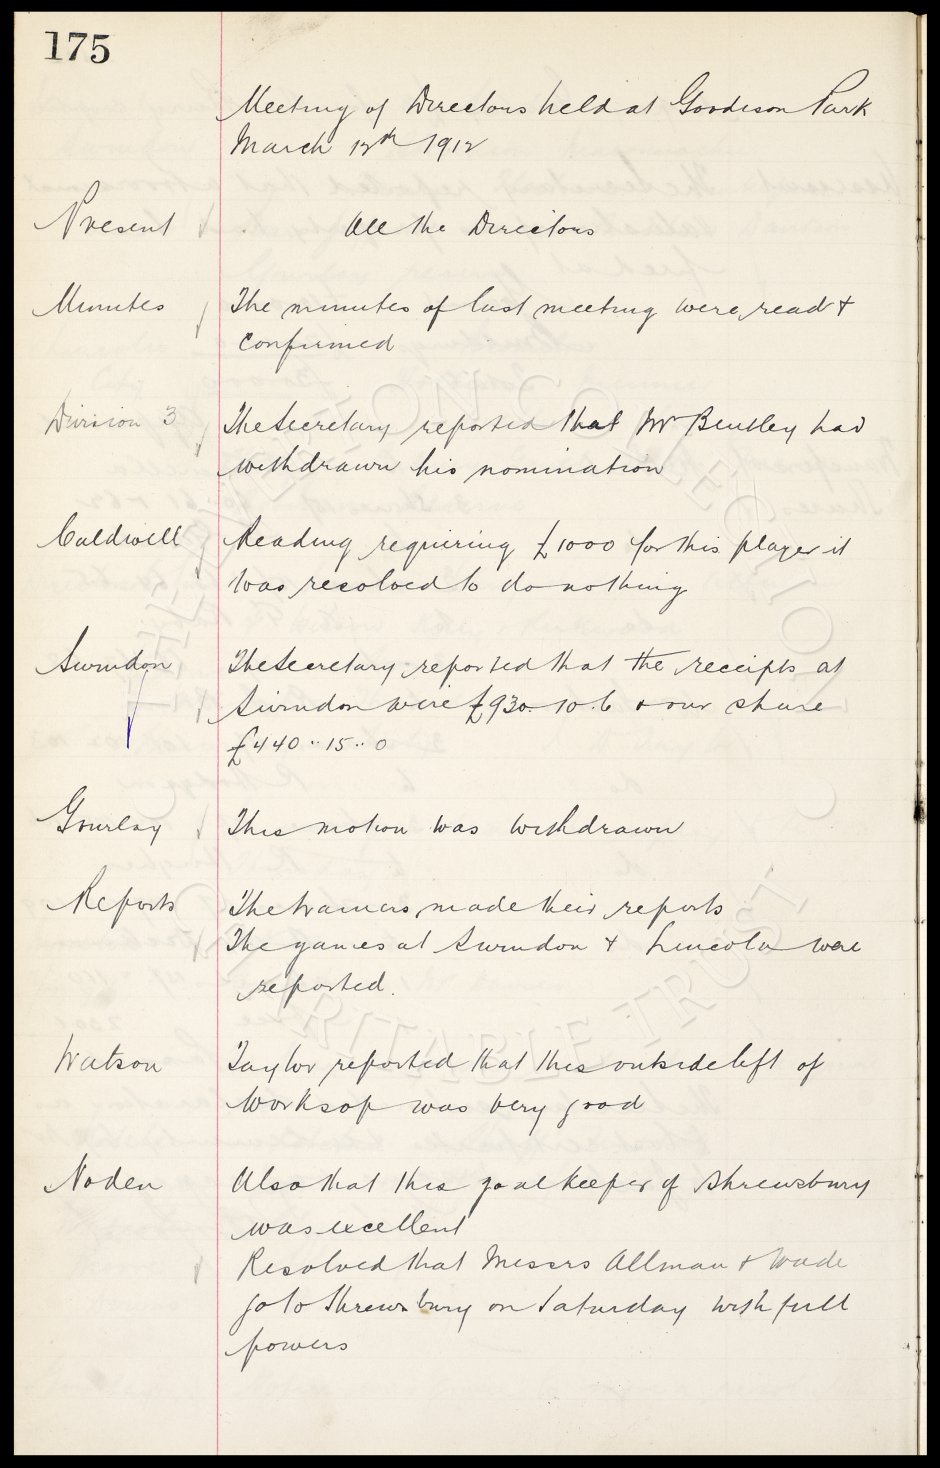 175
Meeting of Directors held at Goodison Park
March 12th 1912
Present All the Directors
Minutes The minutes of last meeting were read &
confirmed
Division 3 The Secretary reported that Mr Bentley had
withdrawn his nomination
Caldwell Reading requiring £1000 for this player it
was resolved to do nothing
Swindon The Secretary reported that the receipts at
Swindon were £930.10.6 & our share
£440..15..0
Gourlay This motion was withdrawn
Reports The trainers made their reports
The games at Swindon & Lincoln were
reported.
Watson Taylor reported that this outside left of
Worksop was very good
Noden Also that this goalkeeper of Shrewsbury
was excellent
Resolved that Messrs Allman & Wade
go to Shrewsbury on Saturday with full
powers